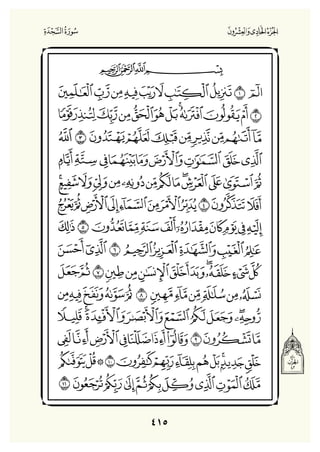 سُورَةُ السَّجْدَةِ
الجُزْءُ الحَادِي وَالعِشْرُونَ
بِسْمِ اللَّهِ الرَّحْمَٰنِ الرَّحِيمِ
الٓمٓ ١ تَنزِيلُ ٱلْكِتَٰبِ لَا رَيْبَ فِيهِ مِن رَّبِّ ٱلْعَٰلَمِينَ
٢ أَمْ يَقُولُونَ ٱفْتَرَىٰهُ ۚ بَلْ هُوَ ٱلْحَقُّ مِن رَّبِّكَ لِتُنذِرَ قَوْمًا
مَّآ أَتَىٰهُم مِّن نَّذِيرٍ مِّن قَبْلِكَ لَعَلَّهُمْ يَهْتَدُونَ ٣ ٱللَّهُ
ٱلَّذِى خَلَقَ ٱلسَّمَٰوَٰتِ وَٱلْأَرْضَ وَمَا بَيْنَهُمَا فِى سِتَّةِ أَيَّامٍ
ثُمَّ ٱسْتَوَىٰ عَلَى ٱلْعَرْشِ ۖ مَا لَكُم مِّن دُونِهِۦ مِن وَلِىٍّ وَلَا شَفِيعٍ ۚ
أَفَلَا تَتَذَكَّرُونَ ٤ يُدَبِّرُ ٱلْأَمْرَ مِنَ ٱلسَّمَآءِ إِلَى ٱلْأَرْضِ ثُمَّ يَعْرُجُ
إِلَيْهِ فِى يَوْمٍ كَانَ مِقْدَارُهُۥٓ أَلْفَ سَنَةٍ مِّمَّا تَعُدُّونَ ٥ ذَٰلِكَ
عَٰلِمُ ٱلْغَيْبِ وَٱلشَّهَٰدَةِ ٱلْعَزِيزُ ٱلرَّحِيمُ ٦ ٱلَّذِىٓ أَحْسَنَ
كُلَّ شَىْءٍ خَلَقَهُۥ ۖ وَبَدَأَ خَلْقَ ٱلْإِنسَٰنِ مِن طِينٍ ٧ ثُمَّ جَعَلَ
نَسْلَهُۥ مِن سُلَٰلَةٍ مِّن مَّآءٍ مَّهِينٍ ٨ ثُمَّ سَوَّىٰهُ وَنَفَخَ فِيهِ مِن
رُّوحِهِۦ ۖ وَجَعَلَ لَكُمُ ٱلسَّمْعَ وَٱلْأَبْصَٰرَ وَٱلْأَفْـِٔدَةَ ۚ قَلِيلًا
مَّا تَشْكُرُونَ ٩ وَقَالُوٓا۟ أَءِذَا ضَلَلْنَا فِى ٱلْأَرْضِ أَءِنَّا لَفِى
خَلْقٍ جَدِيدٍۭ ۚ بَلْ هُم بِلِقَآءِ رَبِّهِمْ كَٰفِرُونَ ١٠ ۞ قُلْ يَتَوَفَّىٰكُم
مَّلَكُ ٱلْمَوْتِ ٱلَّذِى وُكِّلَ بِكُمْ ثُمَّ إِلَىٰ رَبِّكُمْ تُرْجَعُونَ ١١
٤١٥